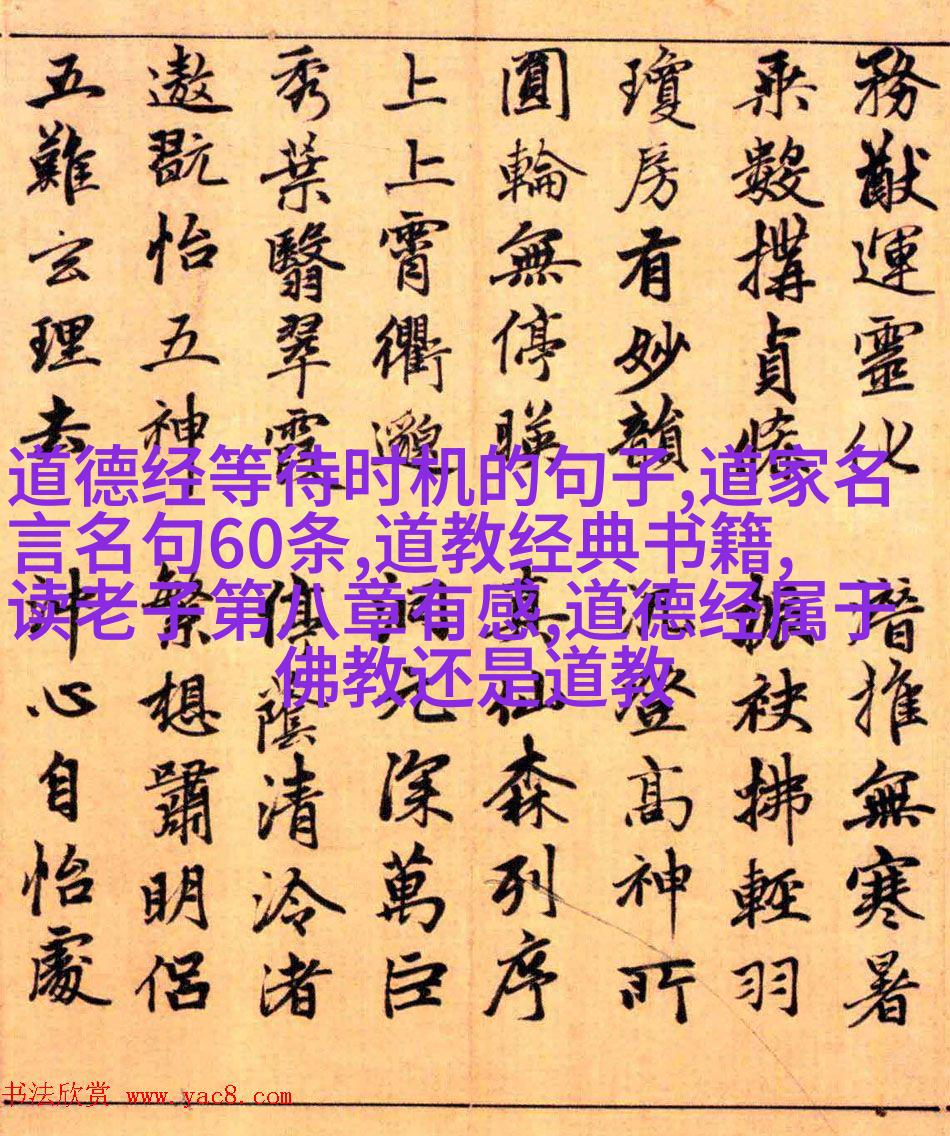 務猷運靈化 暗推無寒暑
乘數搆貞 袂拂輕羽
瓊房有妙韻 登高神所
圓輪無停暎 真仙森列序
上上霄衢邈 洞元深萬巨
秀葉翳翠霞 停蔭清泠渚
遨翫怡五神 繁想嘯明侶
五難玄理去 沖心自怡處
道德经等待时机的句子,道家名
言名句60条,道教经典书籍,
读老子第八章有感,道德经属于
佛教还是道教
书法欣赏 www.yac8.com